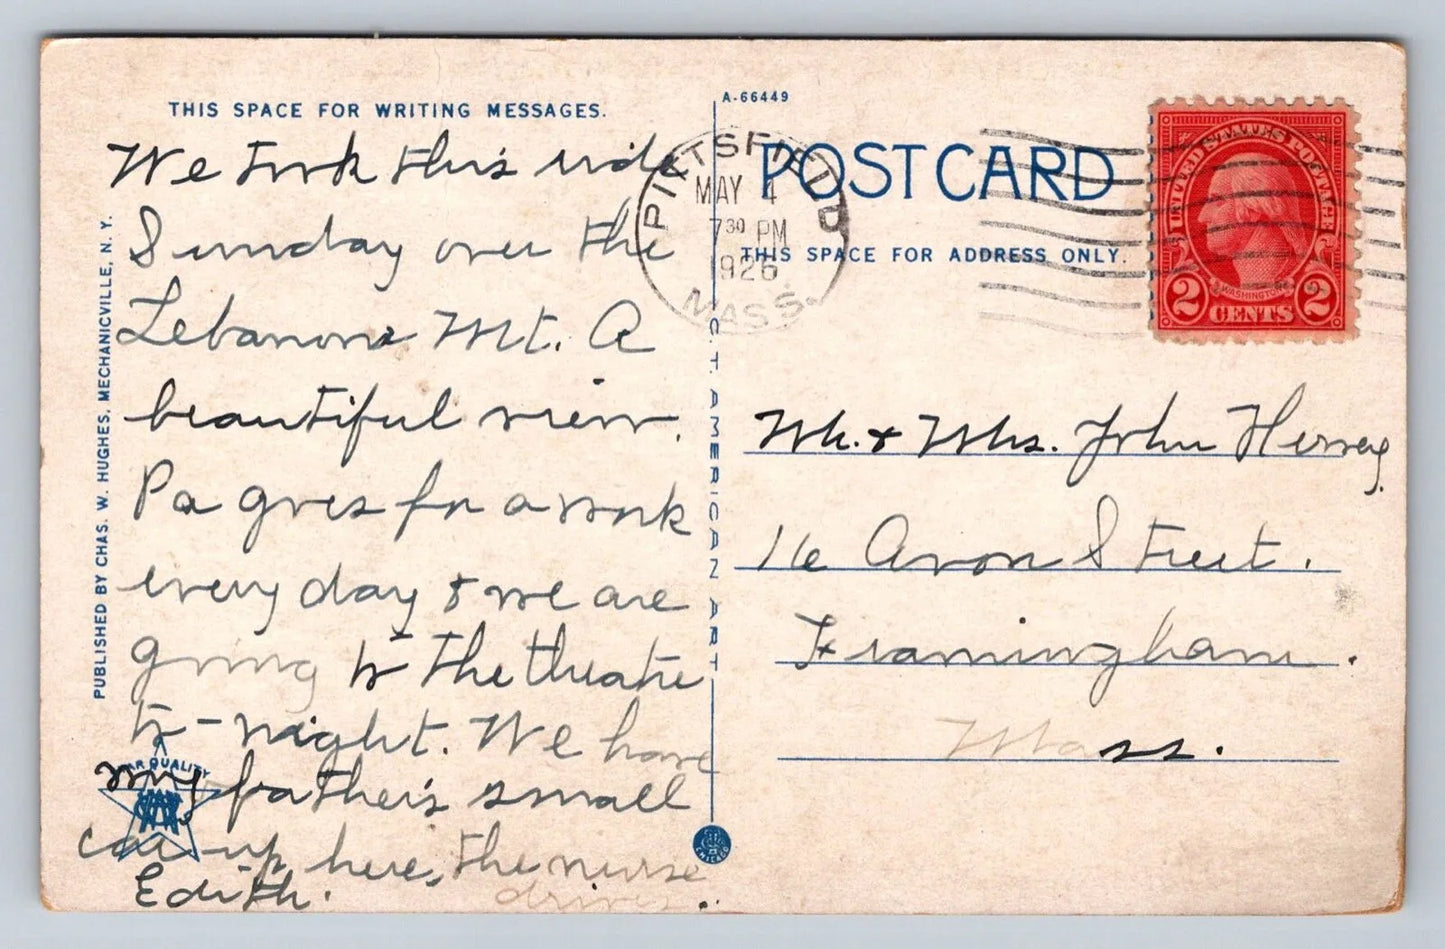 THIS SPACE FOR WRITING MESSAGES.
We took this ride
Sunday over the
Lebanon Mt. A
beautiful view.
Pa goes for a walk
every day & we are
going to the theatre
to-night. We have
my father's small
car up here, the nurse
drives.
Edith.
PUBLISHED BY CHAS. W. HUGHES, MECHANICVILLE, N. Y.
C. T. AMERICAN ART
CHICAGO
A-66449
POST CARD
THIS SPACE FOR ADDRESS ONLY.
PITTSFIELD
MAY 4
7 30 PM
1926
MASS.
UNITED STATES POSTAGE
WASHINGTON
2 CENTS 2
Mr. & Mrs. John Hervey
16 Avon Street.
Framingham.
Mass.